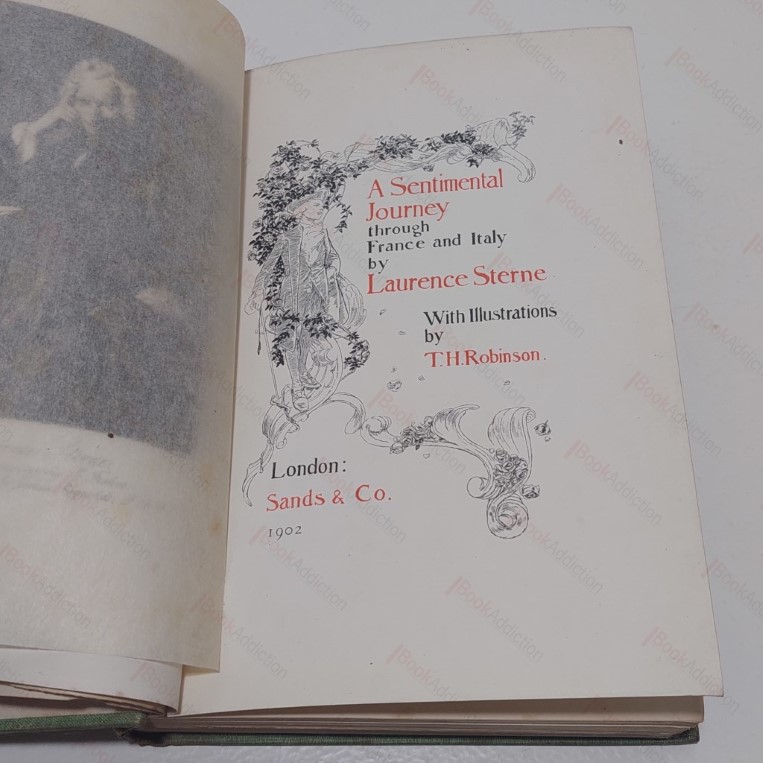 A Sentimental
Journey
through
France and Italy
by
Laurence Sterne
With Illustrations
by
T.H.Robinson.
London:
Sands & Co.
1902
BookAddiction